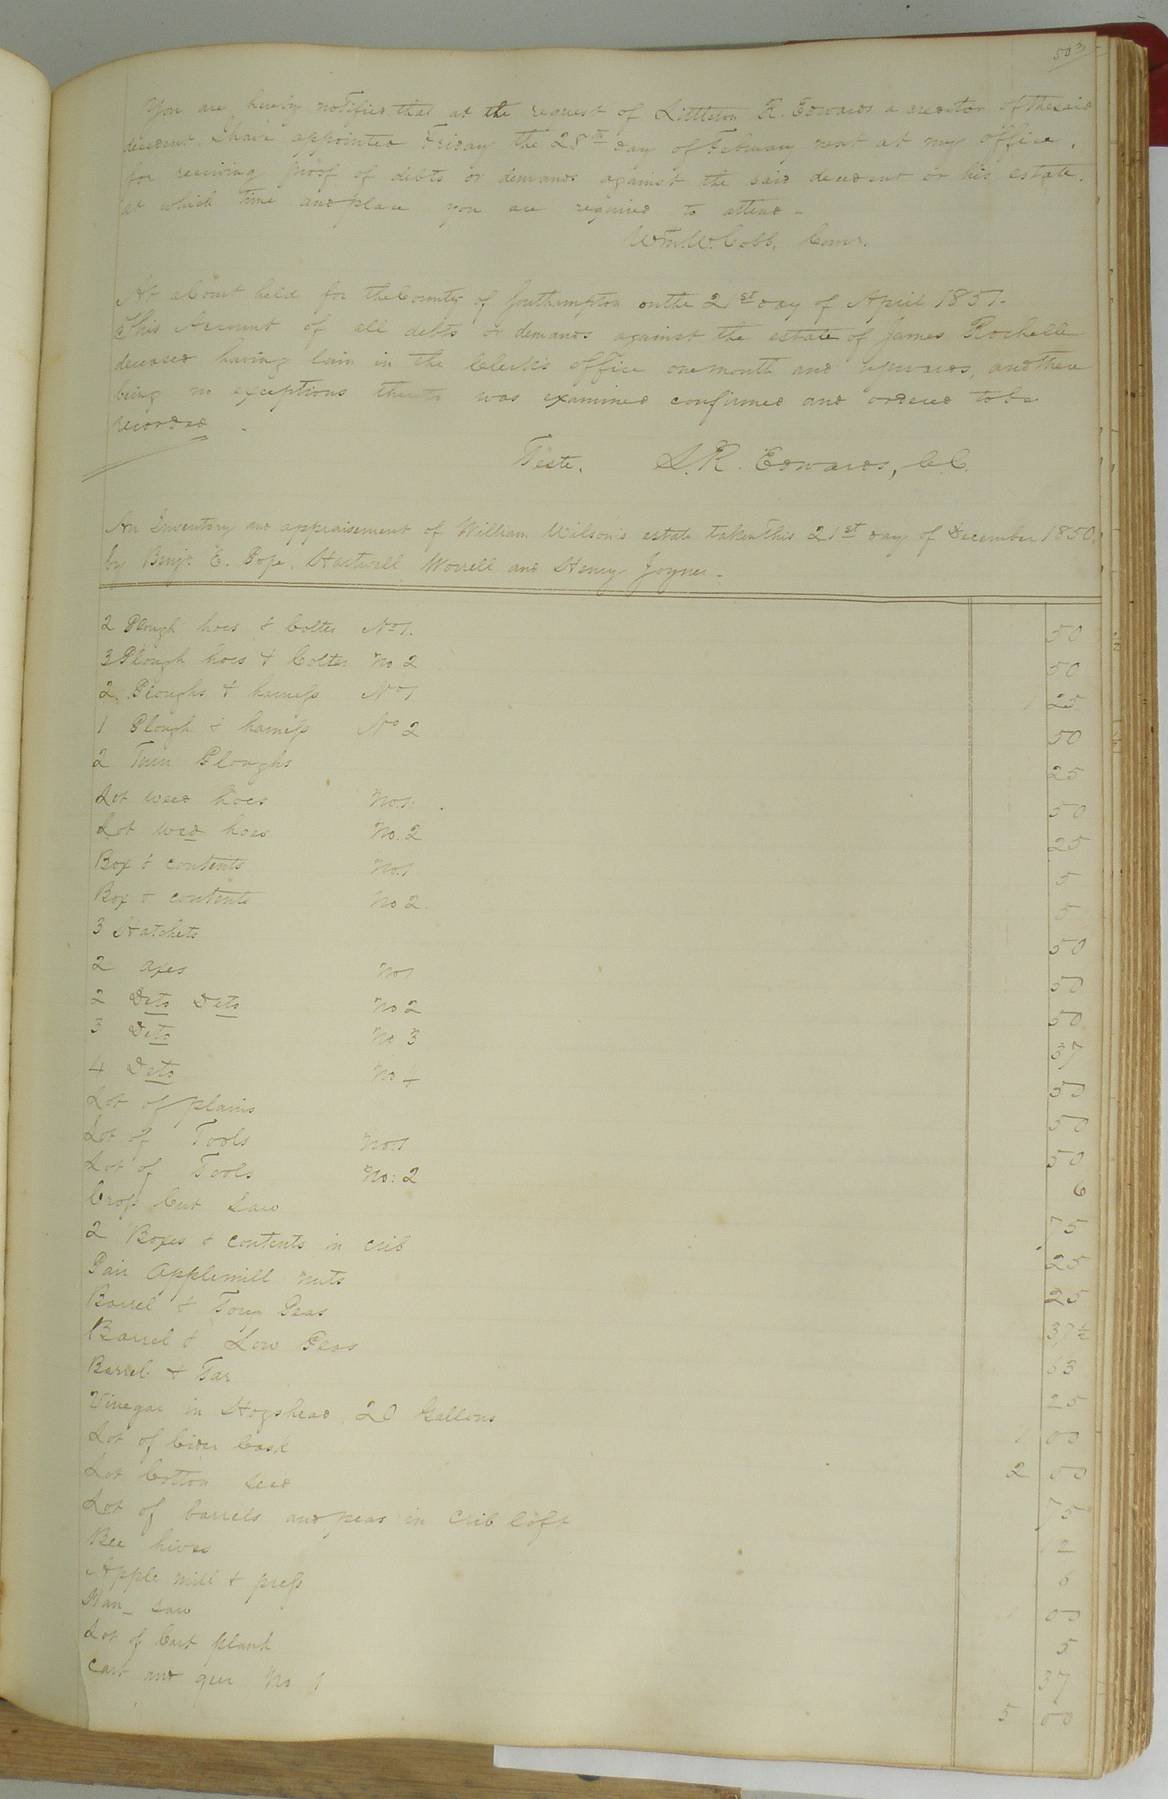 503
You are hereby notified that at the request of Littleton R. Edwards a creditor of the said
decedent. I have appointed Friday the 28th day of February next at my office,
for receiving proof of debts or demands against the said decedent or his estate.
at which time and place you are required to attend -
Wm. W. Cobb, Comr.
At a Court held for the County of Southampton on the 21st day of April 1851.
This Account of all debts or demands against the estate of James Rochelle
deceased having lain in the Clerk's office one month and upwards, and there
being no exceptions thereto was examined confirmed and ordered to be
recorded.
Teste. L. R. Edwards, C.C.
An Inventory and appraisement of William Wilson's estate taken this 21st day of December 1850.
by Benjn. E. Pope, Hartwell Worrell and Henry Joyner.
2 Plough hoes & Colter No 1. 50
3 Plough hoes & Colter No 2 50
2 Ploughs & harness No 1 1 25
1 Plough & harness No 2 50
2 Turn Ploughs 25
Lot weed hoes No. 1. 50
Lot weed hoes No. 2 25
Box & contents No. 1 5
Box & contents No 2. 5
3 Hatchets 50
2 axes No 1 50
2 Deto Deto No 2 50
3 Deto No 3 37
4 Deto No 4 50
Lot of plains 50
Lot of Tools No: 1 50
Lot of Tools No: 2 6
Cross Cut Saw 75
2 Boxes & contents in crib 25
Pair Applemill nuts 25
Barrel & Tory Peas 37½
Barrel & Low Peas 63
Barrel & Tar 25
Vinegar in Hogshead 20 Gallons 1 00
Lot of Cider Cask 2 00
Lot Cotton seed 75
Lot of barrels and peas in crib loft 12
Bee hives 6
Apple mill & press 1 00
Man saw 5
Lot of Cart plank 37
Cart and geer No 1 5 00